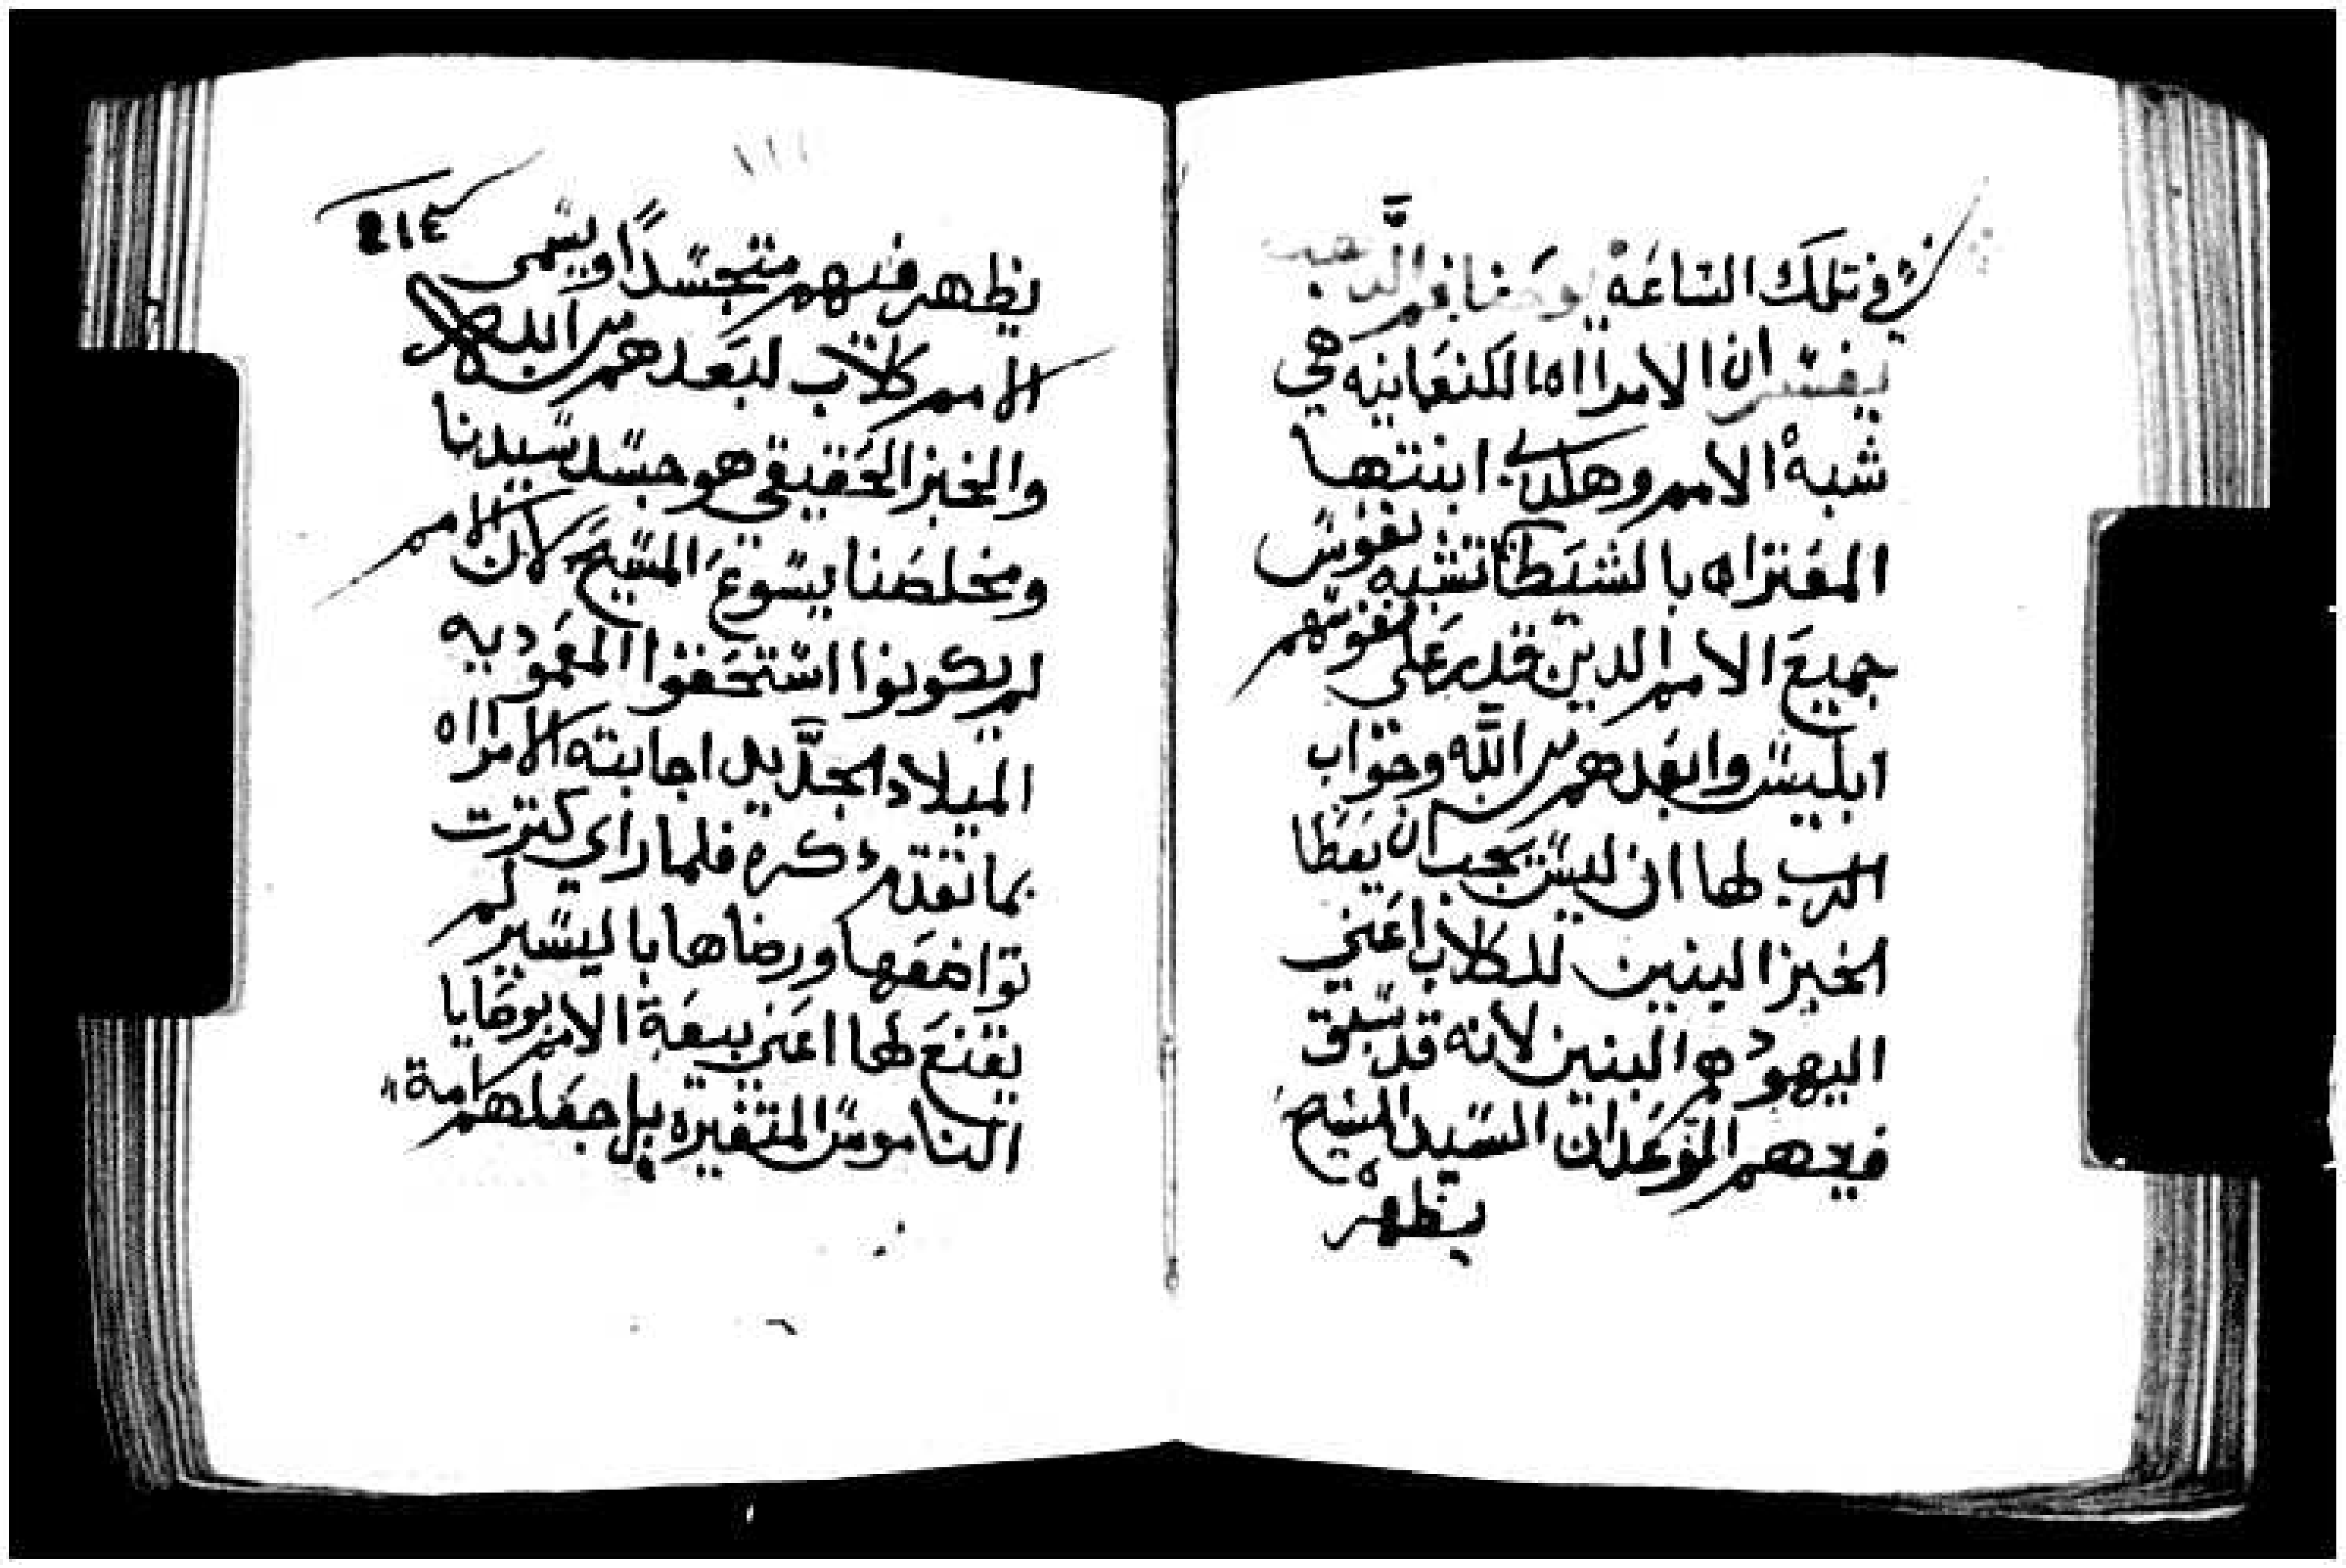 في تلك الساعة يوحنا فم الدهب
يفسر ان الامرااه الكنعانيه هي
شبه الامم وهكدي ابنتها
المعتراه بالشيطان تشبه نفوس
جميع الامم الدين قدر على نفوسهم
ابليس وابعدهم من الله وجواب
الرب لها ان ليس يجب ان يعطا
الخبز البنين للكلاب اعني
اليهود هم البنين لانه قد سبق
فيهم الوعد ان السيد المسيح
يظهر
214
يظهر فيهم متجسدًا ويسمى
الامم كلاب لبعدهم من الله
والخبز الحقيقي هو جسد سيدنا
ومخلصنا يسوع المسيح لان الامم
لم يكونوا استحقوا المعموديه
الميلاد الجديد اجابته الامرااه
بما تقدم دكره فلما راي كترت
تواضعها ورضاها باليسير لم
يقنع لها اعني بيعة الامم بوصايا
الناموس المتغيره بل جعلهم امة